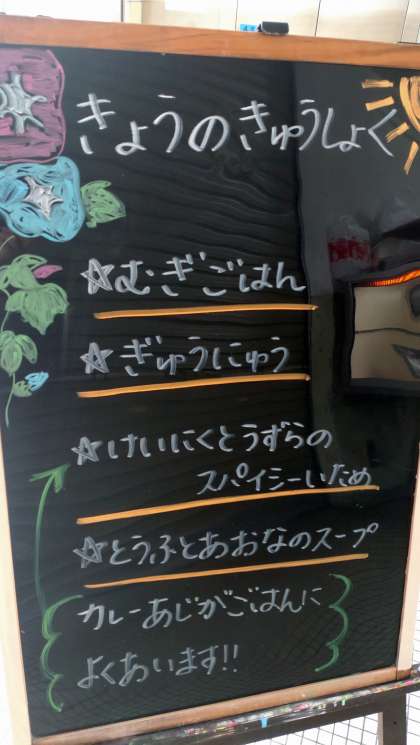 きょうのきゅうしょく
☆むぎごはん
☆ぎゅうにゅう
☆けいにくとうずらの
スパイシーいため
☆とうふとあおなのスープ
カレーあじがごはんに
よくあいます!!